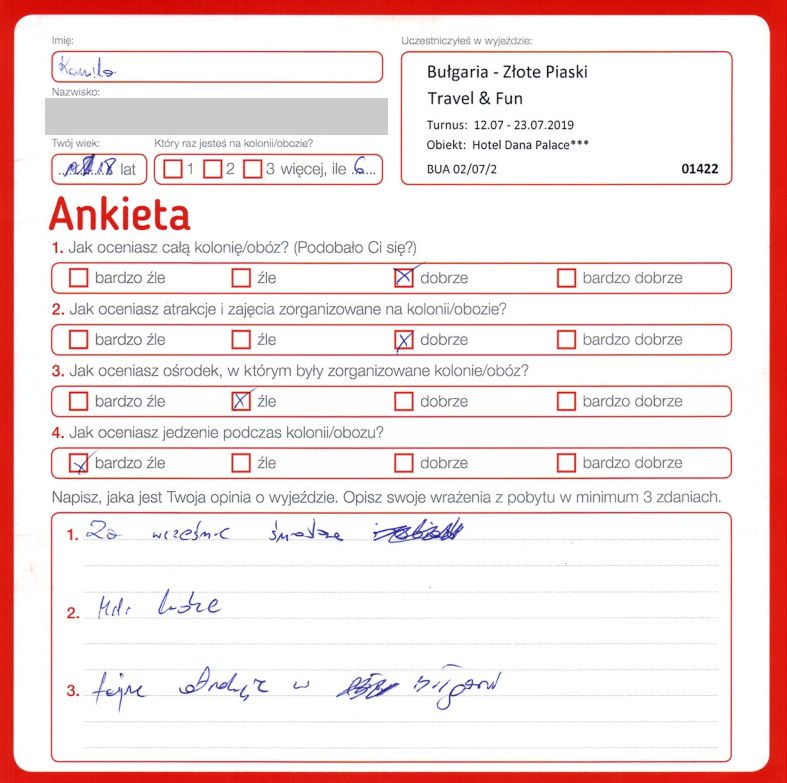 Imię:
Kamila
Uczestniczyłeś w wyjeździe:
Bułgaria - Złote Piaski
Travel & Fun
Turnus: 12.07 - 23.07.2019
Obiekt: Hotel Dana Palace***
BUA 02/07/2
01422
Nazwisko:
Twój wiek:
18 lat
Który raz jesteś na kolonii/obozie?
1 2 3 więcej, ile 6
Ankieta
1. Jak oceniasz całą kolonię/obóz? (Podobało Ci się?)
bardzo źle źle dobrze bardzo dobrze
2. Jak oceniasz atrakcje i zajęcia zorganizowane na kolonii/obozie?
bardzo źle źle dobrze bardzo dobrze
3. Jak oceniasz ośrodek, w którym były zorganizowane kolonie/obóz?
bardzo źle źle dobrze bardzo dobrze
4. Jak oceniasz jedzenie podczas kolonii/obozu?
bardzo źle źle dobrze bardzo dobrze
Napisz, jaka jest Twoja opinia o wyjeździe. Opisz swoje wrażenia z pobytu w minimum 3 zdaniach.
1. Za wcześnie
2. Mili
3. fajne atrakcje w